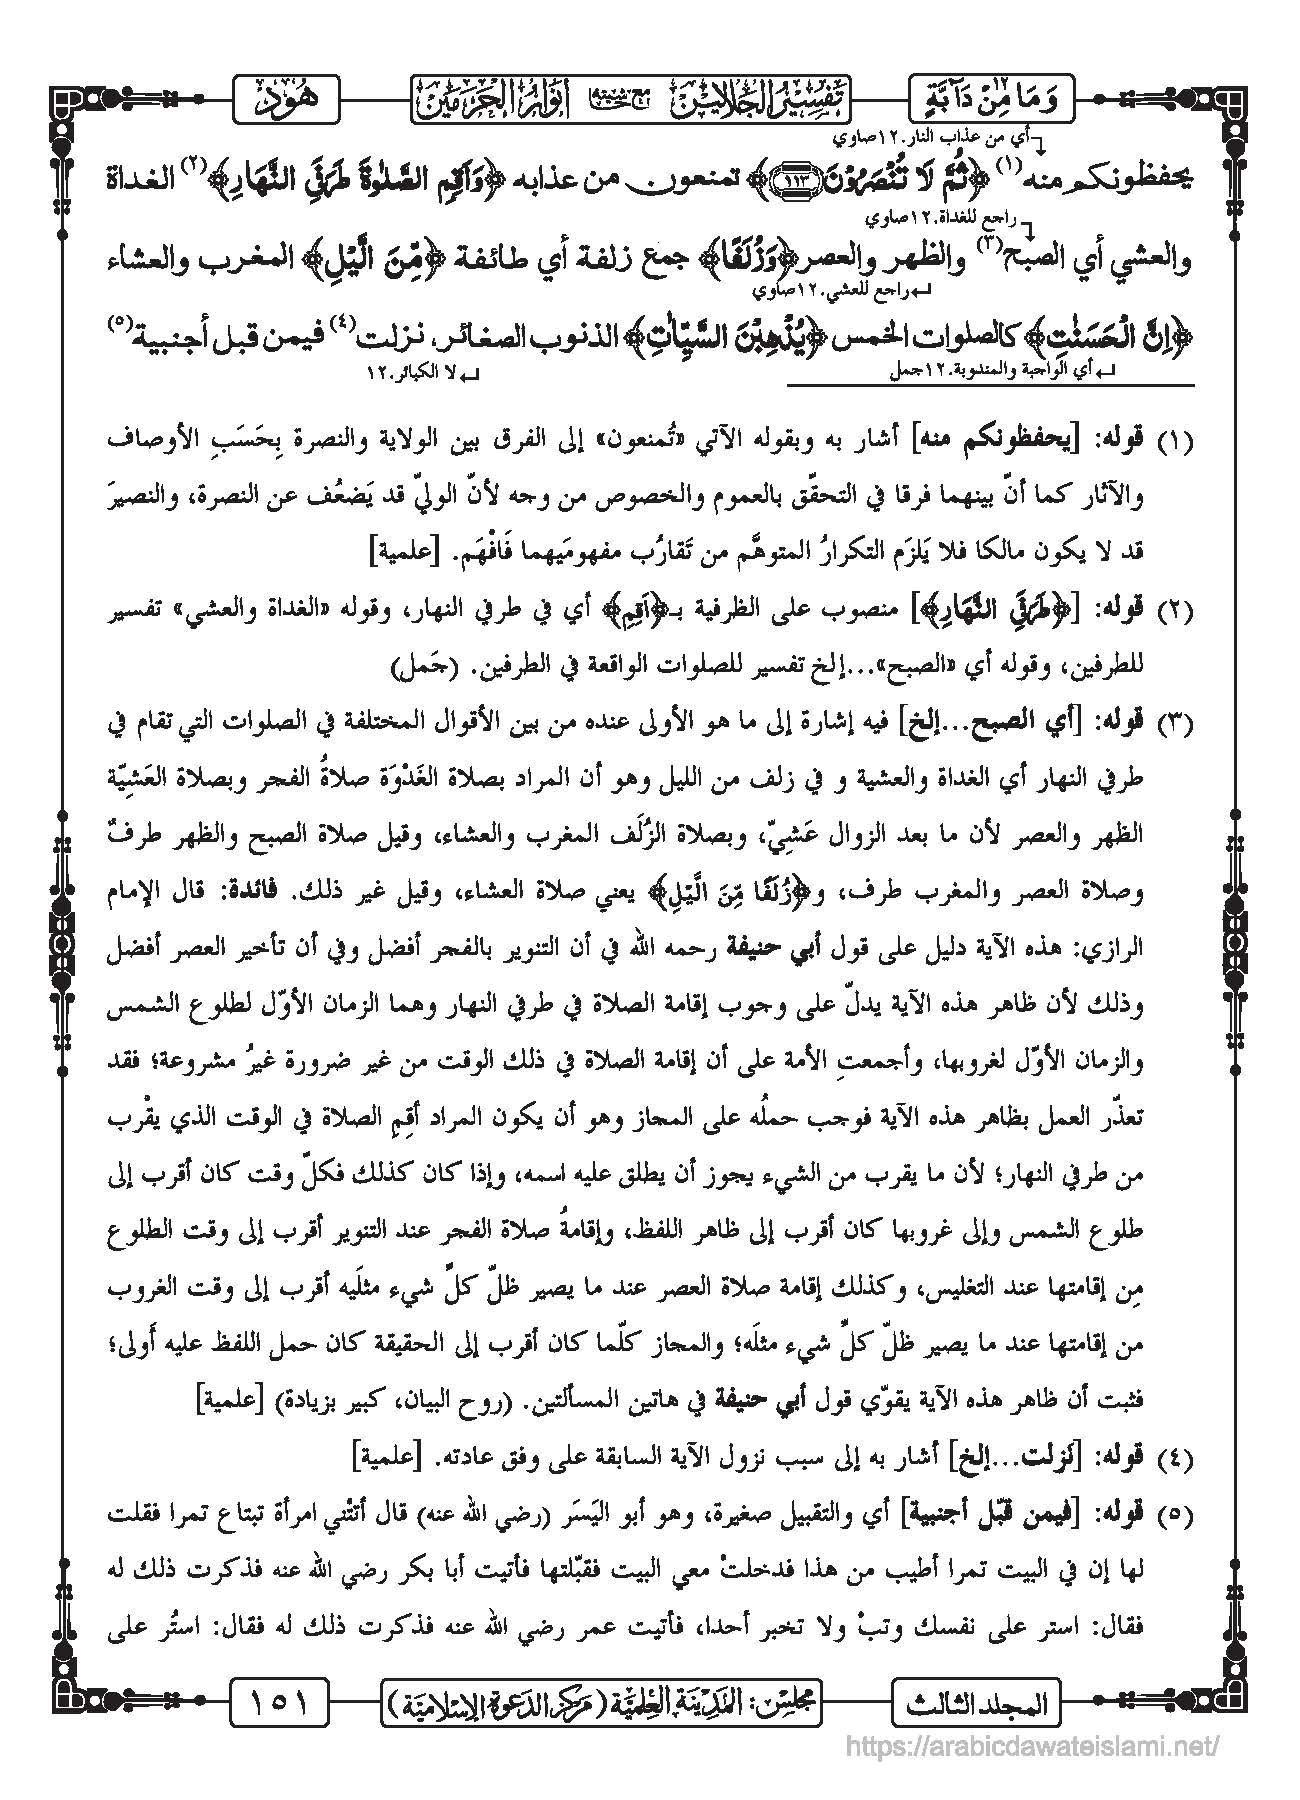 وَمَا مِنْ دَآبَّةٍ ١٢
تفسير الجلالين مع حاشيته أنوار الحرمين
هُوْد
أي من عذاب النار.١٢صاوي
يحفظونكم منه(١) ﴿ثُمَّ لَا تُنْصَرُوْنَ ١١٣﴾ تمنعون من عذابه ﴿وَاَقِمِ الصَّلٰوةَ طَرَفَيِ النَّهَارِ﴾(٢) الغداة
راجع للغداة.١٢صاوي
والعشي أي الصبح(٣) والظهر والعصر ﴿وَزُلَفًا﴾ جمع زلفة أي طائفة ﴿مِّنَ الَّيْلِ﴾ المغرب والعشاء
راجع للعشي.١٢صاوي
﴿اِنَّ الْحَسَنٰتِ﴾ كالصلوات الخمس ﴿يُذْهِبْنَ السَّيِّاٰتِ﴾ الذنوب الصغائر، نزلت(٤) فيمن قبل أجنبية(٥)
أي الواجبة والمندوبة.١٢جمل
لا الكبائر.١٢
(١) قوله: [يحفظونكم منه] أشار به وبقوله الآتي «تُمنعون» إلى الفرق بين الولاية والنصرة بِحَسَبِ الأوصاف
والآثار كما أنّ بينهما فرقا في التحقّق بالعموم والخصوص من وجه لأنّ الوليّ قد يَضعُف عن النصرة، والنصيرَ
قد لا يكون مالكا فلا يَلزَم التكرارُ المتوهَّم من تَقارُب مفهومَيهما فَافْهَم. [علمية]
(٢) قوله: [﴿طَرَفَيِ النَّهَارِ﴾] منصوب على الظرفية بـ﴿اَقِمِ﴾ أي في طرفي النهار، وقوله «الغداة والعشي» تفسير
للطرفين، وقوله أي «الصبح»...إلخ تفسير للصلوات الواقعة في الطرفين. (جَمل)
(٣) قوله: [أي الصبح...إلخ] فيه إشارة إلى ما هو الأولى عنده من بين الأقوال المختلفة في الصلوات التي تقام في
طرفي النهار أي الغداة والعشية و في زلف من الليل وهو أن المراد بصلاة الغَدْوَة صلاةُ الفجر وبصلاة العَشِيّة
الظهر والعصر لأن ما بعد الزوال عَشِيّ، وبصلاة الزُلَف المغرب والعشاء، وقيل صلاة الصبح والظهر طرفٌ
وصلاة العصر والمغرب طرف، و﴿زُلَفًا مِّنَ الَّيْلِ﴾ يعني صلاة العشاء، وقيل غير ذلك. فائدة: قال الإمام
الرازي: هذه الآية دليل على قول أبي حنيفة رحمه الله في أن التنوير بالفجر أفضل وفي أن تأخير العصر أفضل
وذلك لأن ظاهر هذه الآية يدلّ على وجوب إقامة الصلاة في طرفي النهار وهما الزمان الأوّل لطلوع الشمس
والزمان الأوّل لغروبها، وأجمعتِ الأمة على أن إقامة الصلاة في ذلك الوقت من غير ضرورة غيرُ مشروعة؛ فقد
تعذّر العمل بظاهر هذه الآية فوجب حملُه على المجاز وهو أن يكون المراد أقِمِ الصلاة في الوقت الذي يقْرب
من طرفي النهار؛ لأن ما يقرب من الشيء يجوز أن يطلق عليه اسمه، وإذا كان كذلك فكلّ وقت كان أقرب إلى
طلوع الشمس وإلى غروبها كان أقرب إلى ظاهر اللفظ، وإقامةُ صلاة الفجر عند التنوير أقرب إلى وقت الطلوع
مِن إقامتها عند التغليس، وكذلك إقامة صلاة العصر عند ما يصير ظلّ كلِّ شيء مثلَيه أقرب إلى وقت الغروب
من إقامتها عند ما يصير ظلّ كلِّ شيء مثلَه؛ والمجاز كلّما كان أقرب إلى الحقيقة كان حمل اللفظ عليه أَولى؛
فثبت أن ظاهر هذه الآية يقوّي قول أبي حنيفة في هاتين المسألتين. (روح البيان، كبير بزيادة) [علمية]
(٤) قوله: [نزلت...إلخ] أشار به إلى سبب نزول الآية السابقة على وفق عادته. [علمية]
(٥) قوله: [فيمن قبّل أجنبية] أي والتقبيل صغيرة، وهو أبو اليَسَر (رضي الله عنه) قال أتتْني امرأة تبتاع تمرا فقلت
لها إن في البيت تمرا أطيب من هذا فدخلتْ معي البيت فقبّلتها فأتيت أبا بكر رضي الله عنه فذكرت ذلك له
فقال: استر على نفسك وتبْ ولا تخبر أحدا، فأتيت عمر رضي الله عنه فذكرت ذلك له فقال: استُر على
المجلد الثالث
مجلس: المدينة العلمية (مركز الدعوة الإسلامية)
١٥١
https://arabicdawateislami.net/